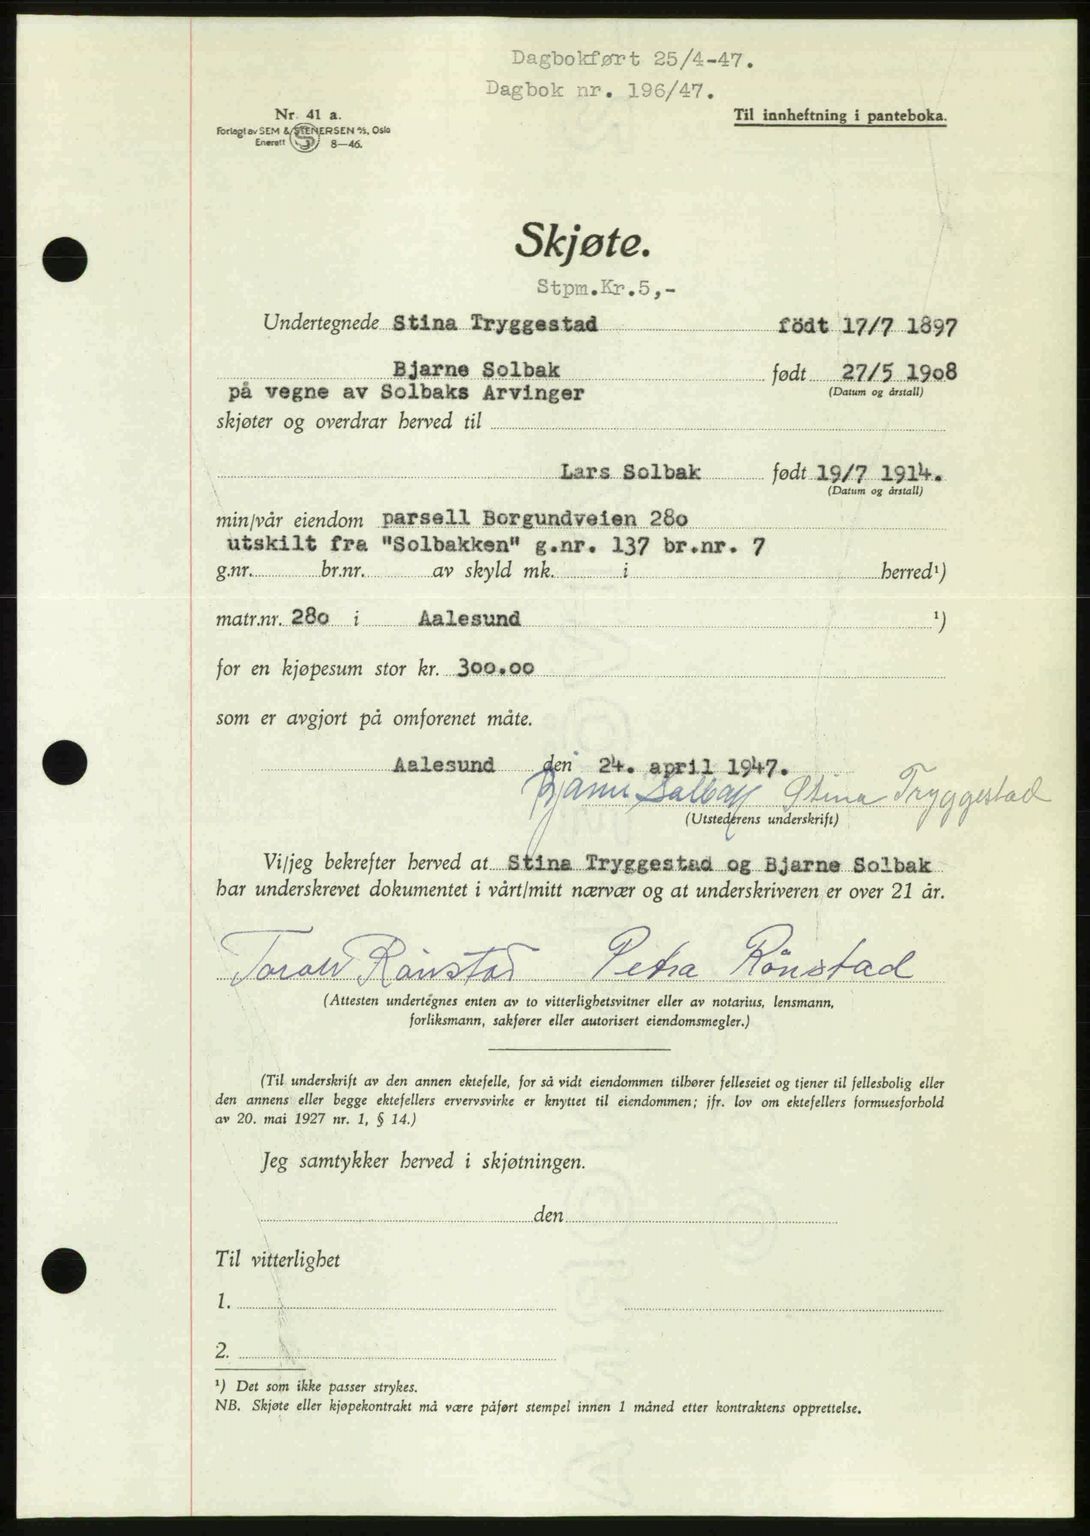 Dagbokført 25/4-47.
Dagbok nr. 196/47.
Nr. 41 a.
Forlagt av SEM & STENERSEN A/S, Oslo
Enerett S 8—46.
Til innheftning i panteboka.
Skjøte.
Stpm.Kr.5,-
Undertegnede Stina Tryggestad födt 17/7 1897
Bjarne Solbak født 27/5 1908
på vegne av Solbaks Arvinger (Datum og årstall)
skjøter og overdrar herved til
Lars Solbak født 19/7 1914.
(Datum og årstall)
min/vår eiendom parsell Borgundveien 280
utskilt fra "Solbakken" g.nr. 137 br.nr. 7
g.nr. br.nr. av skyld mk. i herred¹)
matr.nr. 280 i Aalesund ¹)
for en kjøpesum stor kr. 300.00
som er avgjort på omforenet måte.
Aalesund den 24. april 1947.
Bjarne Solbak Stina Tryggestad
(Utstederens underskrift)
Vi/jeg bekrefter herved at Stina Tryggestad og Bjarne Solbak
har underskrevet dokumentet i vårt/mitt nærvær og at underskriveren er over 21 år.
Rönstad Petra Rönstad
(Attesten undertegnes enten av to vitterlighetsvitner eller av notarius, lensmann,
forliksmann, sakfører eller autorisert eiendomsmegler.)
(Til underskrift av den annen ektefelle, for så vidt eiendommen tilhører felleseiet og tjener til fellesbolig eller
den annens eller begge ektefellers ervervsvirke er knyttet til eiendommen; jfr. lov om ektefellers formuesforhold
av 20. mai 1927 nr. 1, § 14.)
Jeg samtykker herved i skjøtningen.
den
Til vitterlighet
1.
2.
¹) Det som ikke passer strykes.
NB. Skjøte eller kjøpekontrakt må være påført stempel innen 1 måned etter kontraktens opprettelse.